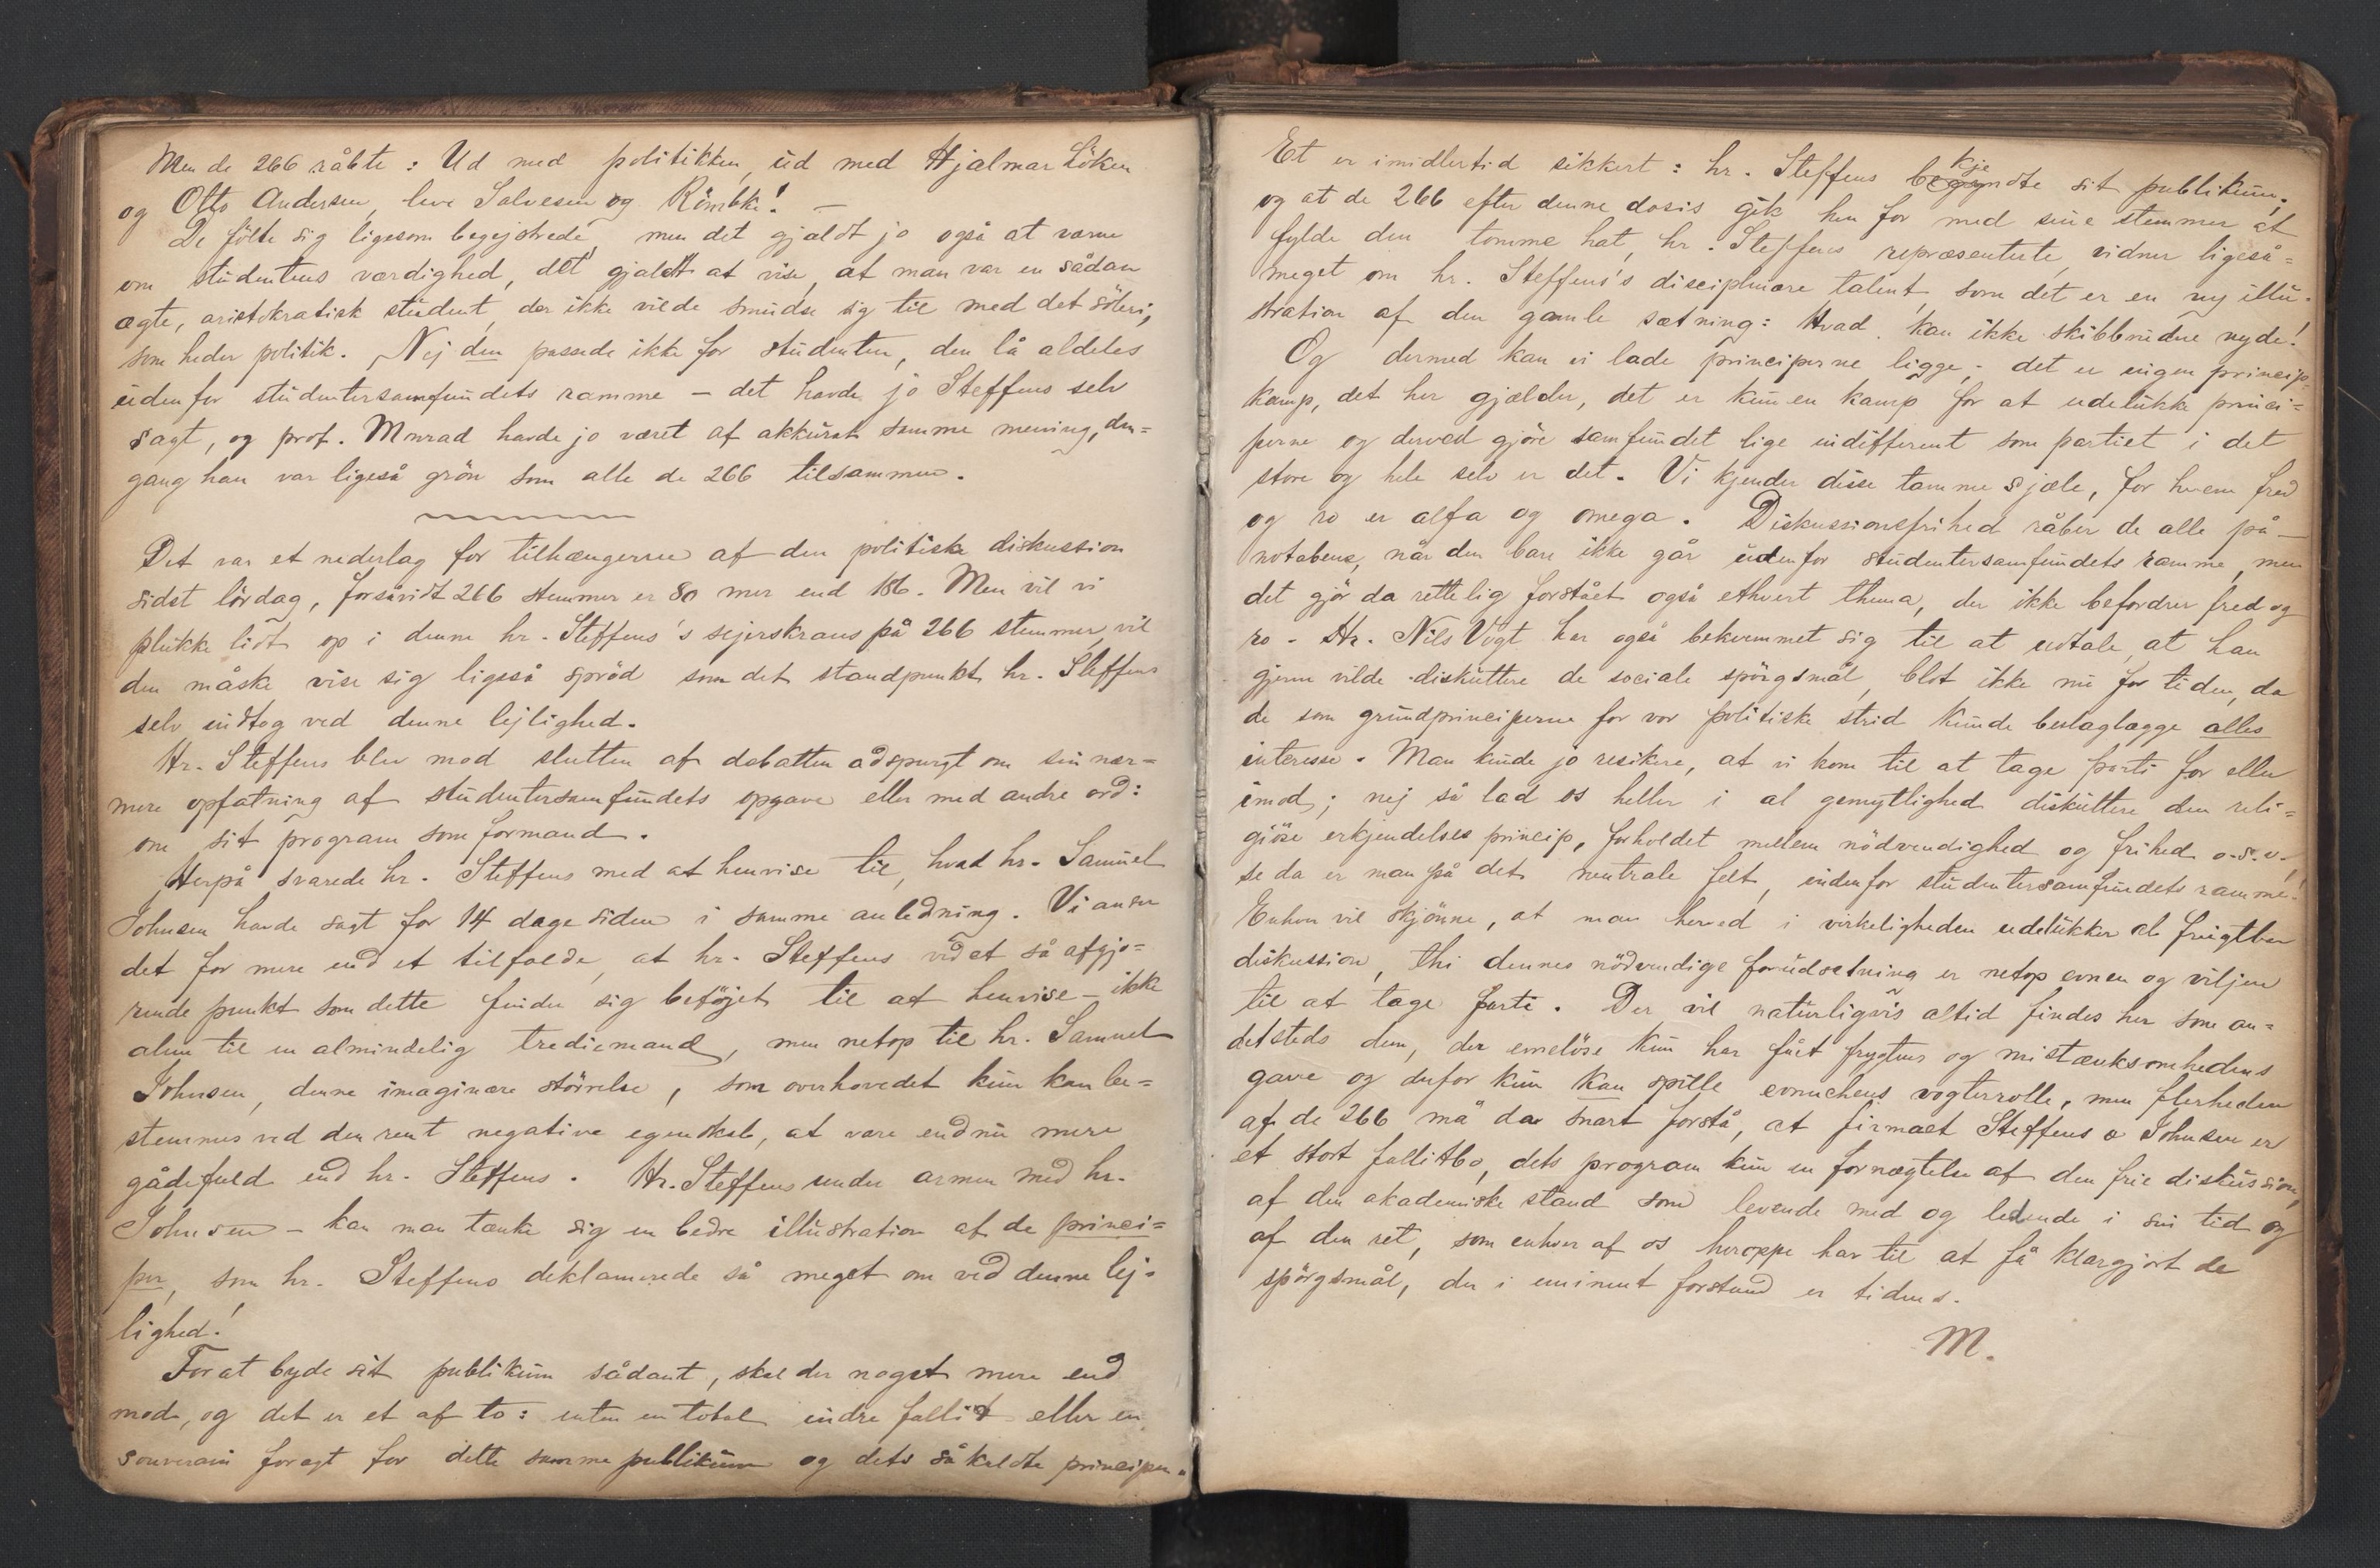 Men de 266 råbte: Ud med politikken, ud med Hjalmar Löken
og Otto Andersen, leve Salvesen og Römcke! —
De fölte sig ligesom begejstrede, men det gjaldt jo også at værne
om studentens værdighed, det gjaldt at vise, at man var en sådan
ægte, aristokratisk student, der ikke vilde smudse sig til med det söleri,
som heder politik. Nej den passede ikke for studenten, den lå aldeles
udenfor studentersamfundets ramme – det havde jo Steffens selv
sagt, og prof. Monrad havde jo været af akkurat samme mening, den=
gang han var ligeså grön som alle de 266 tilsammen.
Det var et nederlag for tilhængerne af den politiske diskussion
sidst lördag, forsåvidt 266 stemmer er 80 mer end 186. Men vil vi
plukke lidt op i denne hr. Steffens's sejerskrans på 266 stemmer, vil
den måske vise sig ligeså spröd som det standpunkt hr. Steffens
selv indtog ved denne lejlighed.
Hr. Steffens blev mod slutten af debatten adspurgt om sin nær=
mere opfatning af studentersamfundets opgave eller med andre ord:
om sit program som formand.
Herpå svarede hr. Steffens med at henvise til, hvad hr. Samuel
Johnsen havde sagt for 14 dage siden i samme anledning. Vi anser
det for mere end et tilfælde, at hr. Steffens ved et så afgjö=
rende punkt som dette finder sig beföjet til at henvise – ikke
alene til en almindelig trediemand, men netop til hr. Samuel
Johnsen, denne imaginære störrelse, som overhovedet kun kan be=
stemmes ved den rent negative egenskab, at være endnu mere
gådefuld end hr. Steffens. Hr. Steffens under armen med hr.
Johnsen – kan man tænke sig en bedre illustration af de princi=
per, som hr. Steffens deklamerede så meget om ved denne lej=
lighed!
For at byde sit publikum sådant, skal der noget mere end
mod, og det er et af to: enten en total indre fallit eller en
souveræn foragt for dette samme publikum og dets såkaldte principer.
Et er imidlertid sikkert: hr. Steffens bekjendte sit publikum,
og at de 266 efter denne dosis gik hen for med sine stemmer at
fylde den tomme hat, hr. Steffens repræsenterte, vidner ligeså=
meget om hr. Steffens's disciplinære talent, som det er en ny illu=
stration af den gamle sætning: Hvad kan ikke skibbrudne nyde!
Og dermed kan vi lade principerne ligge; det er ingen princip=
kamp, det her gjælder, det er kun en kamp for at udelukke princi=
perne og derved gjöre samfundet lige indifferent som partiet i det
store og hele selv er det. Vi kjender disse tamme sjæle, for hvem fred
og ro er alfa og omega. Diskussionsfrihed råber de alle på –
notabene, når den bare ikke går udenfor studentersamfundets ramme, men
det gjör da rettelig forstået også ethvert thema, der ikke befordrer fred og
ro. Hr. Nils Vogt har også bekvemmet sig til at udtale, at han
gjerne vilde diskuttere de sociale spörgsmål, blot ikke nu for tiden, da
de som grundprinciperne for vor politiske strid kunde beslaglægge alles
interesse. Man kunde jo resikere, at vi kom til at tage parti for eller
imod; nej så lad os heller i al gemytlighed diskuttere den reli=
giöse erkjendelses princip, forholdet mellem nödvendighed og frihed o.s.v.,
se da er man på det neutrale felt, indenfor studentersamfundets ramme!
Enhver vil skjönne, at man herved i virkeligheden udelukker al frugtbar
diskussion, thi dennes nödvendige forudsætning er netop evnen og viljen
til at tage parti. Der vil naturligvis altid findes her som an=
detsteds dem, der evnelöse kun har fået frygtens og mistænksomhedens
gave og derfor kun kan spille eunuchens vogterrolle, men flerheden
af de 266 må da snart forstå, at firmaet Steffens & Johnsen er
et stort fallitbo, dets program kun en fornægtelse af den frie diskussion,
af den akademiske stand som levende med og ledende i sin tid og
af den ret, som enhver af os heroppe har til at få klargjort de
spörgsmål, der i eminent forstand er tidens.
M.